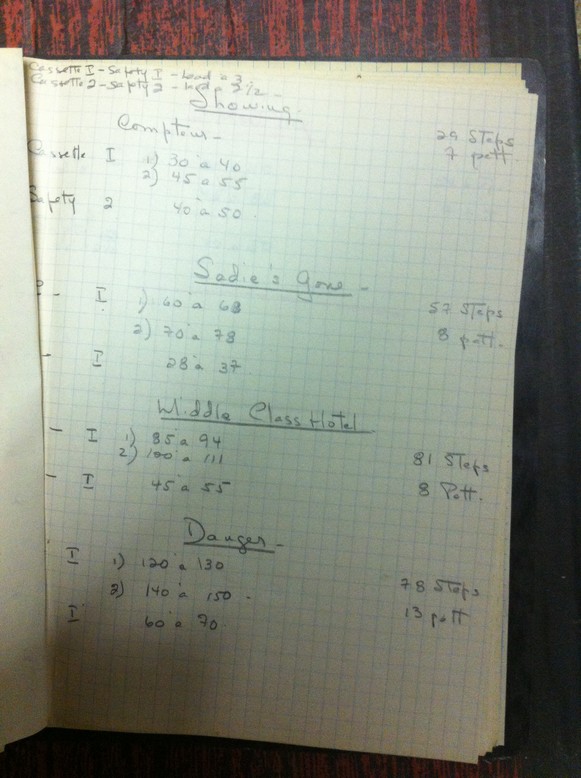 Cassette I - Safety I - Load a 3
Cassette 2 - Safety 2 - 2 1/2 -
Showing.
Compteur - 29 Steps
Cassette I 1) 30 à 40 7 patt.
2) 45 à 55
Safety 2 40 à 50.
Sadie's Gone -
- I 1) 60 à 68 57 Steps
2) 70 à 78 8 patt.
- I 28 à 37
Middle Class Hotel
- I 1) 85 à 94
2) 100 à 111 81 Steps
- I 45 à 55 8 Patt.
Danger -
I 1) 120 à 130
2) 140 à 150. 78 Steps
I 60 à 70. 13 patt